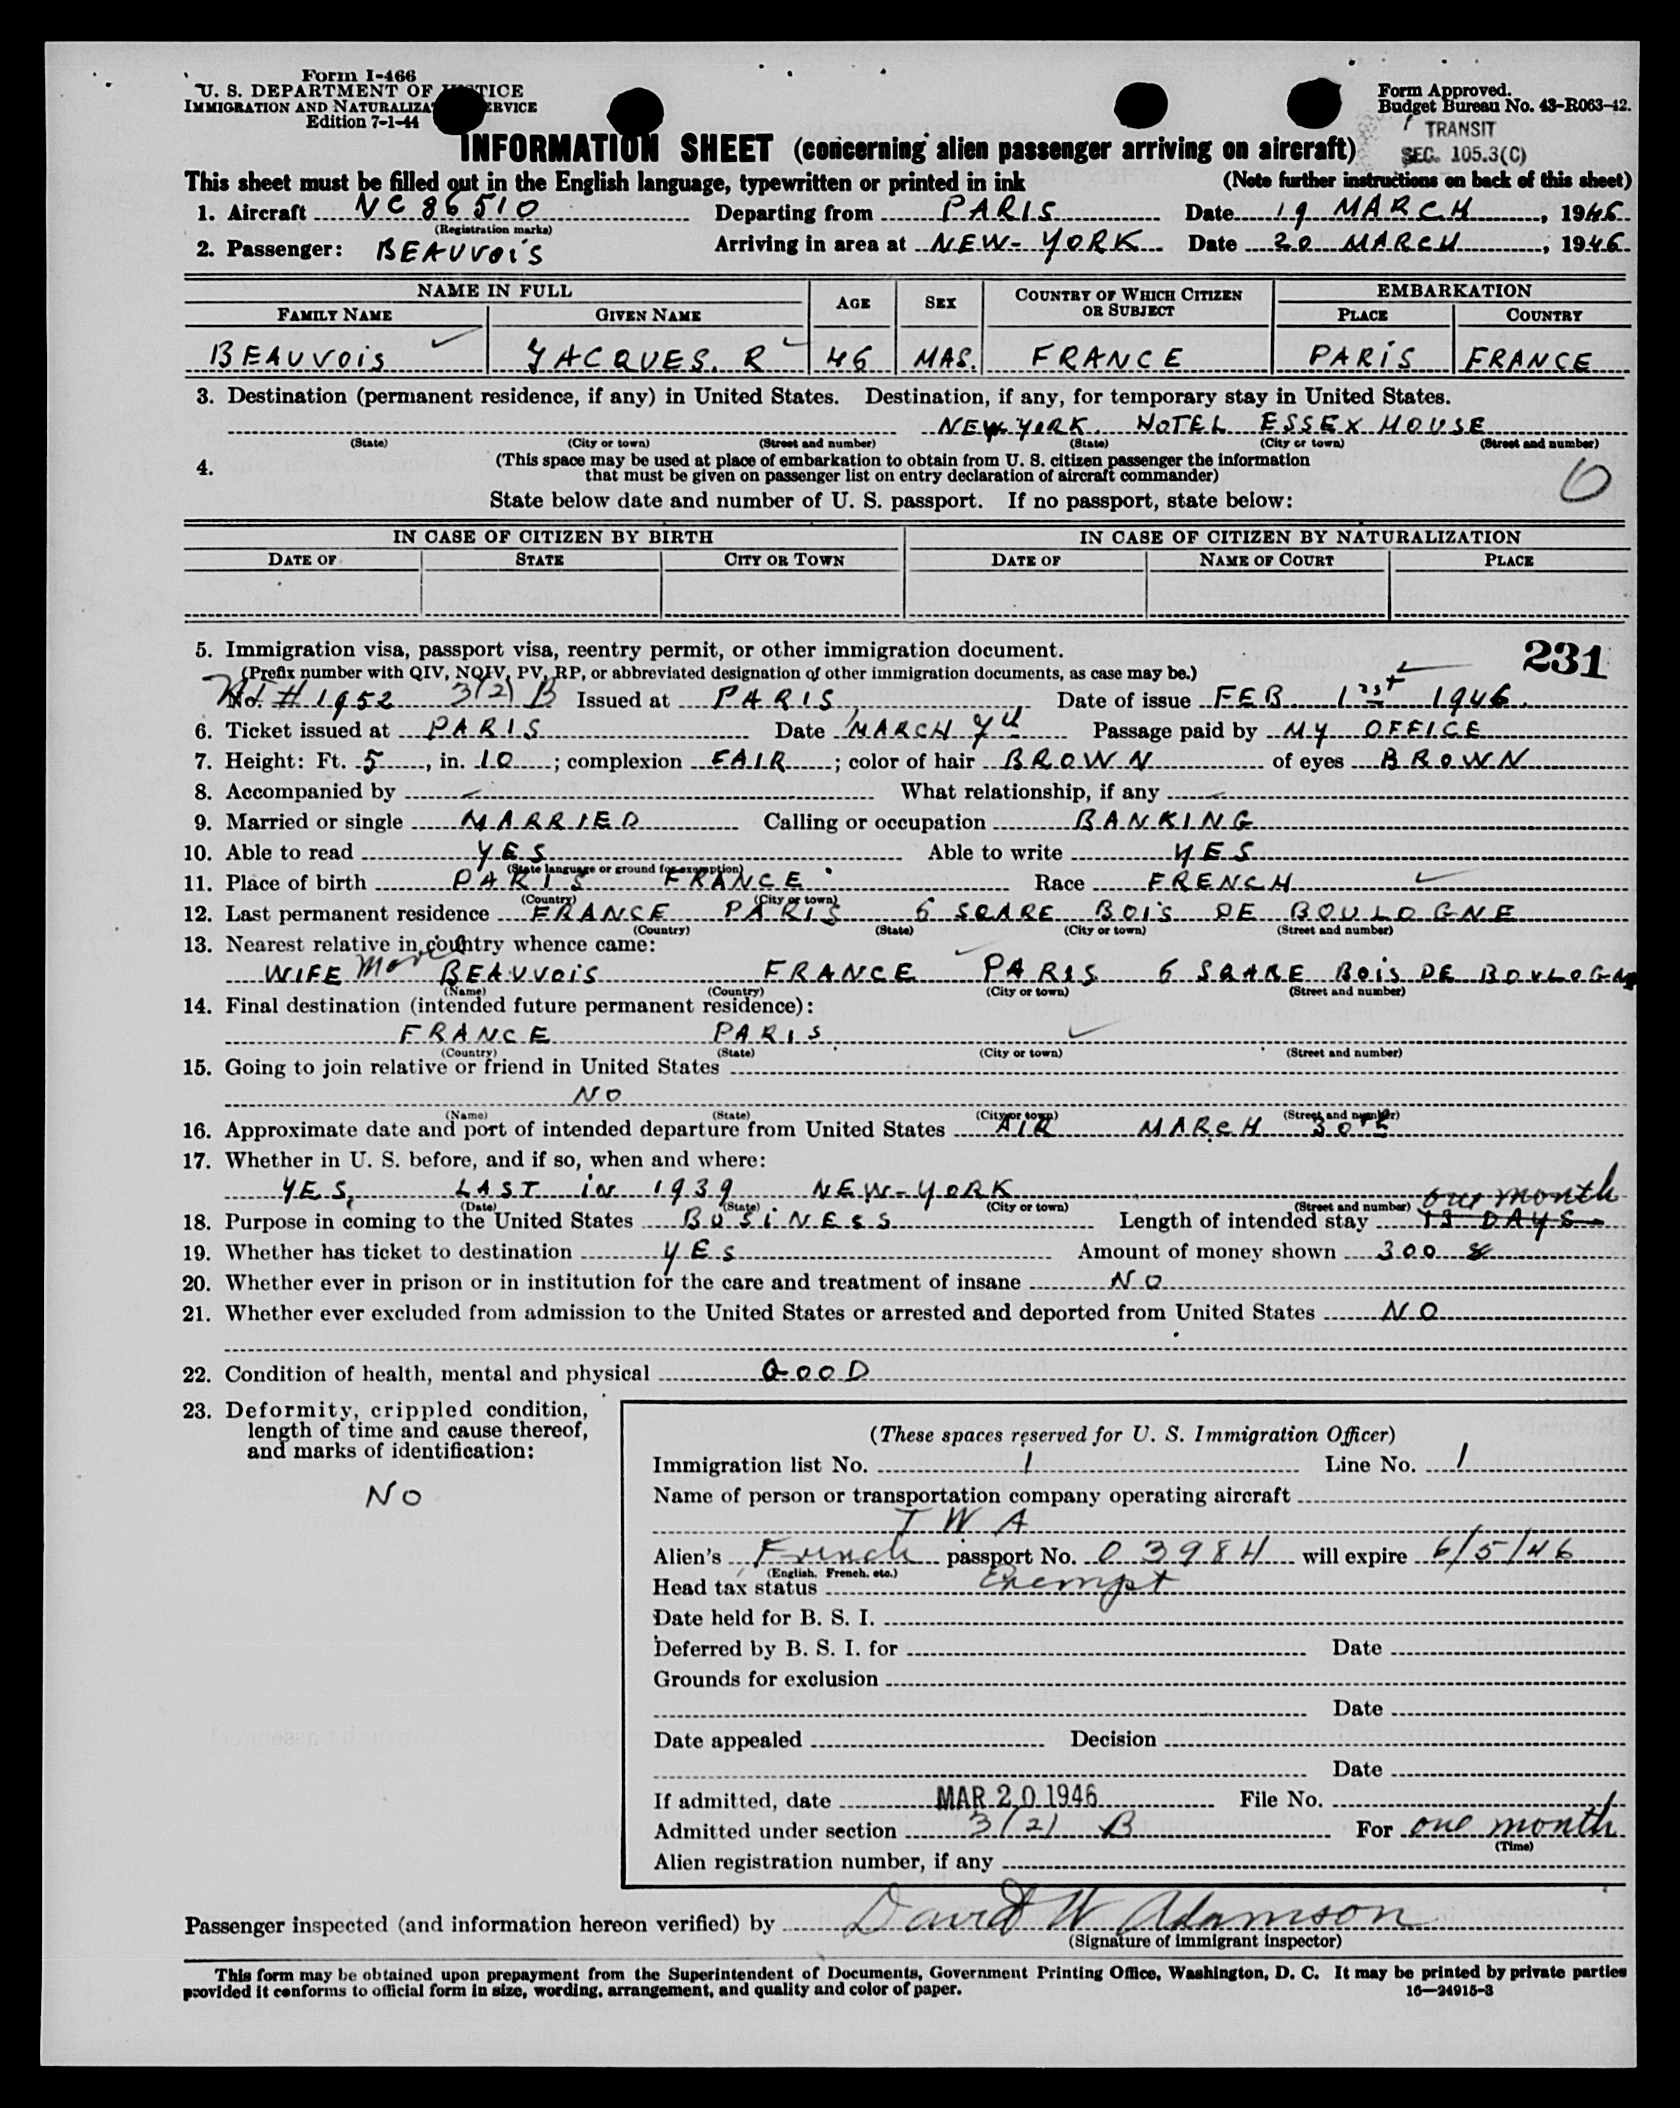 Form I-466
U. S. DEPARTMENT OF JUSTICE
IMMIGRATION AND NATURALIZATION SERVICE
Edition 7-1-44
Form Approved.
Budget Bureau No. 43-R063-42.
TRANSIT
SEC. 105.3(C)
INFORMATION SHEET (concerning alien passenger arriving on aircraft)
This sheet must be filled out in the English language, typewritten or printed in ink (Note further instructions on back of this sheet)
1. Aircraft NC 86510 Departing from PARIS Date 19 MARCH, 1946
(Registration marks)
2. Passenger: BEAUVOIS Arriving in area at NEW-YORK Date 20 MARCH, 1946
NAME IN FULL AGE SEX COUNTRY OF WHICH CITIZEN OR SUBJECT EMBARKATION
FAMILY NAME GIVEN NAME PLACE COUNTRY
BEAUVOIS JACQUES. R 46 MAS. FRANCE PARIS FRANCE
3. Destination (permanent residence, if any) in United States. Destination, if any, for temporary stay in United States.
NEW YORK HOTEL ESSEX HOUSE
(State) (City or town) (Street and number) (State) (City or town) (Street and number)
4. (This space may be used at place of embarkation to obtain from U. S. citizen passenger the information
that must be given on passenger list on entry declaration of aircraft commander)
State below date and number of U. S. passport. If no passport, state below:
IN CASE OF CITIZEN BY BIRTH IN CASE OF CITIZEN BY NATURALIZATION
DATE OF STATE CITY OR TOWN DATE OF NAME OF COURT PLACE
5. Immigration visa, passport visa, reentry permit, or other immigration document. 231
(Prefix number with QIV, NQIV, PV, RP, or abbreviated designation of other immigration documents, as case may be.)
No. # 1952 3(2) B Issued at PARIS Date of issue FEB 1st 1946.
6. Ticket issued at PARIS Date MARCH Passage paid by MY OFFICE
7. Height: Ft. 5, in. 10; complexion FAIR; color of hair BROWN of eyes BROWN
8. Accompanied by What relationship, if any
9. Married or single MARRIED Calling or occupation BANKING
10. Able to read YES Able to write YES
(State language or ground for exemption)
11. Place of birth PARIS FRANCE Race FRENCH
(Country) (City or town)
12. Last permanent residence FRANCE PARIS 6 SQARE BOIS DE BOULOGNE
(Country) (State) (City or town) (Street and number)
13. Nearest relative in country whence came:
WIFE BEAUVOIS FRANCE PARIS 6 SQARE BOIS DE BOULOGNE
(Name) (Country) (City or town) (Street and number)
14. Final destination (intended future permanent residence):
FRANCE PARIS
(Country) (State) (City or town) (Street and number)
15. Going to join relative or friend in United States
NO
(Name) (State) (City or town) (Street and number)
16. Approximate date and port of intended departure from United States AIR MARCH 30th
17. Whether in U. S. before, and if so, when and where:
YES, LAST IN 1939 NEW-YORK
(Date) (State) (City or town) (Street and number) one month
18. Purpose in coming to the United States BUSINESS Length of intended stay DAYS
19. Whether has ticket to destination YES Amount of money shown 300 $
20. Whether ever in prison or in institution for the care and treatment of insane NO
21. Whether ever excluded from admission to the United States or arrested and deported from United States NO
22. Condition of health, mental and physical GOOD
23. Deformity, crippled condition,
length of time and cause thereof,
and marks of identification:
NO
(These spaces reserved for U. S. Immigration Officer)
Immigration list No. 1 Line No. 1
Name of person or transportation company operating aircraft
TWA
Alien's French passport No. 03984 will expire 6/5/46
(English, French, etc.)
Head tax status Exempt
Date held for B. S. I.
Deferred by B. S. I. for Date
Grounds for exclusion
Date
Date appealed Decision
Date
If admitted, date MAR 20 1946 File No.
Admitted under section 3(2) B For one month
(Time)
Alien registration number, if any
Passenger inspected (and information hereon verified) by David W Adamson
(Signature of immigrant inspector)
This form may be obtained upon prepayment from the Superintendent of Documents, Government Printing Office, Washington, D. C. It may be printed by private parties
provided it conforms to official form in size, wording, arrangement, and quality and color of paper. 16—24915-3